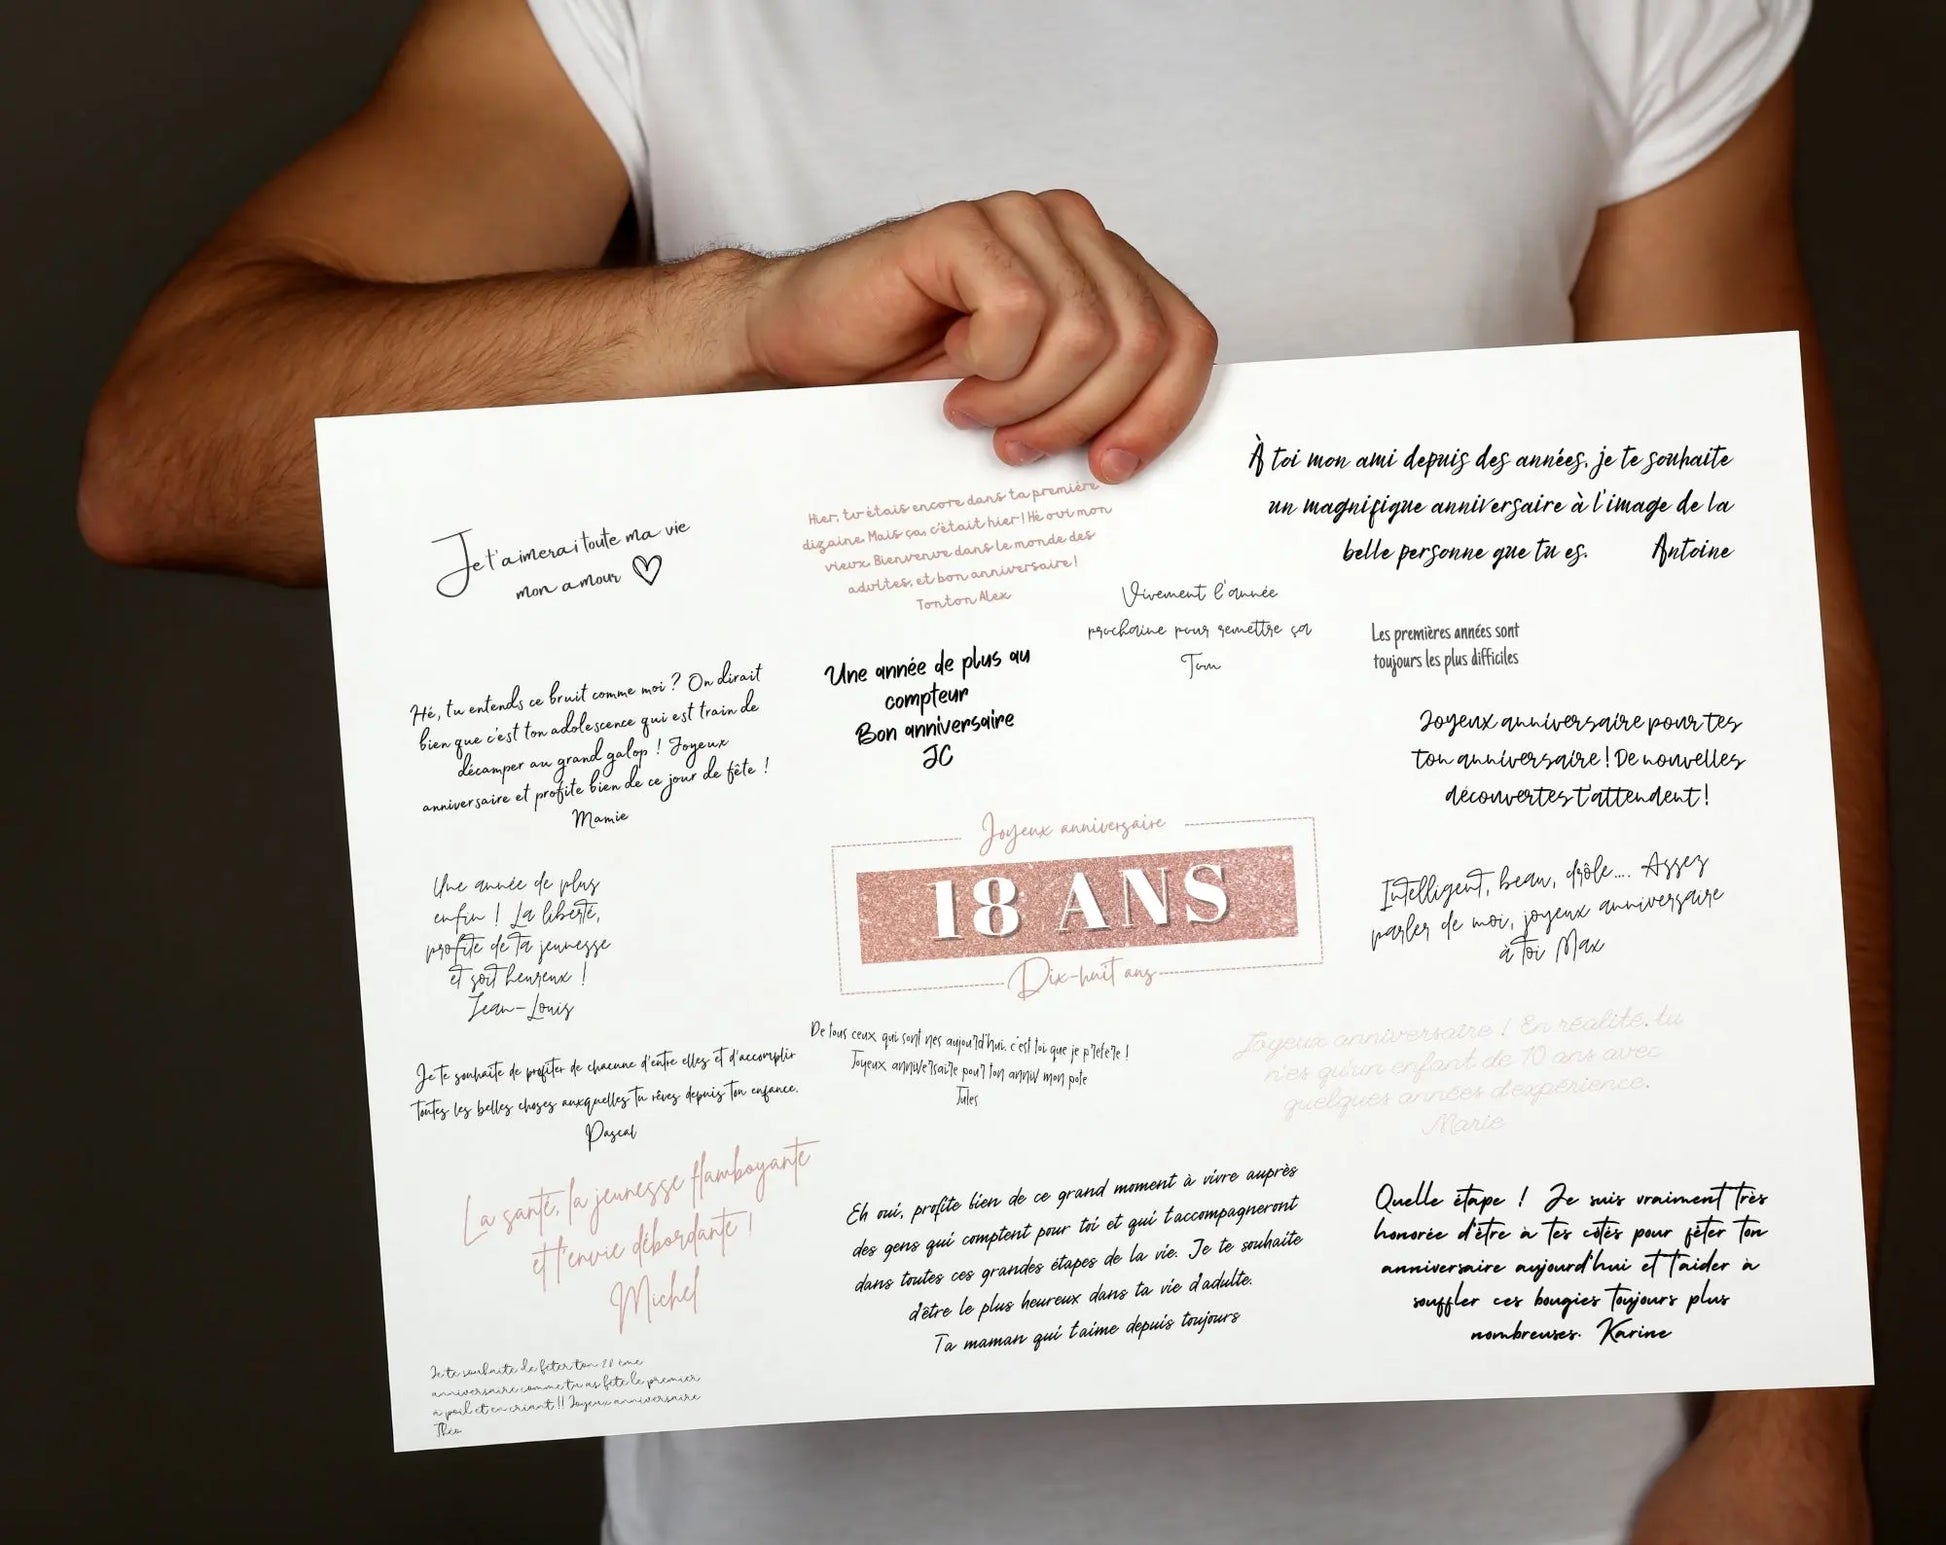 Je t'aimerai toute ma vie
mon amour
Hier, tu étais encore dans ta première
dizaine. Mais ça, c'était hier ! Hé oui mon
vieux. Bienvenue dans le monde des
adultes, et bon anniversaire !
Tonton Alex
À toi mon ami depuis des années, je te souhaite
un magnifique anniversaire à l'image de la
belle personne que tu es. Antoine
Vivement l'année
prochaine pour remettre ça
Tom
Les premières années sont
toujours les plus difficiles
Hé, tu entends ce bruit comme moi ? On dirait
bien que c'est ton adolescence qui est train de
décamper au grand galop ! Joyeux
anniversaire et profite bien de ce jour de fête !
Mamie
Une année de plus au
compteur
Bon anniversaire
JC
Joyeux anniversaire pour tes
ton anniversaire ! De nouvelles
découvertes t'attendent !
Joyeux anniversaire
18 ANS
Dix-huit ans
Une année de plus
enfin ! La liberté,
profite de ta jeunesse
et soit heureux !
Jean-Louis
Intelligent, beau, drôle.... Assez
parler de moi, joyeux anniversaire
à toi Max
Je te souhaite de profiter de chacune d'entre elles et d'accomplir
toutes les belles choses auxquelles tu rêves depuis ton enfance.
Pascal
De tous ceux qui sont nes aujourd'hui, c'est toi que je prefere !
Joyeux anniversaire pour ton anniv mon pote
Jules
Joyeux anniversaire ! En réalité, tu
n'es qu'un enfant de 10 ans avec
quelques années d'expérience.
Marie
La santé, la jeunesse flamboyante
et l'envie débordante !
Michel
Eh oui, profite bien de ce grand moment à vivre auprès
des gens qui comptent pour toi et qui t'accompagneront
dans toutes ces grandes étapes de la vie. Je te souhaite
d'être le plus heureux dans ta vie d'adulte.
Ta maman qui t'aime depuis toujours
Quelle étape ! Je suis vraiment très
honorée d'être à tes côtés pour fêter ton
anniversaire aujourd'hui et t'aider à
souffler ces bougies toujours plus
nombreuses. Karine
Je te souhaite de fêter ton ème
anniversaire comme tu as fêté le premier
a poil et en criant !! Joyeux anniversaire
Théo